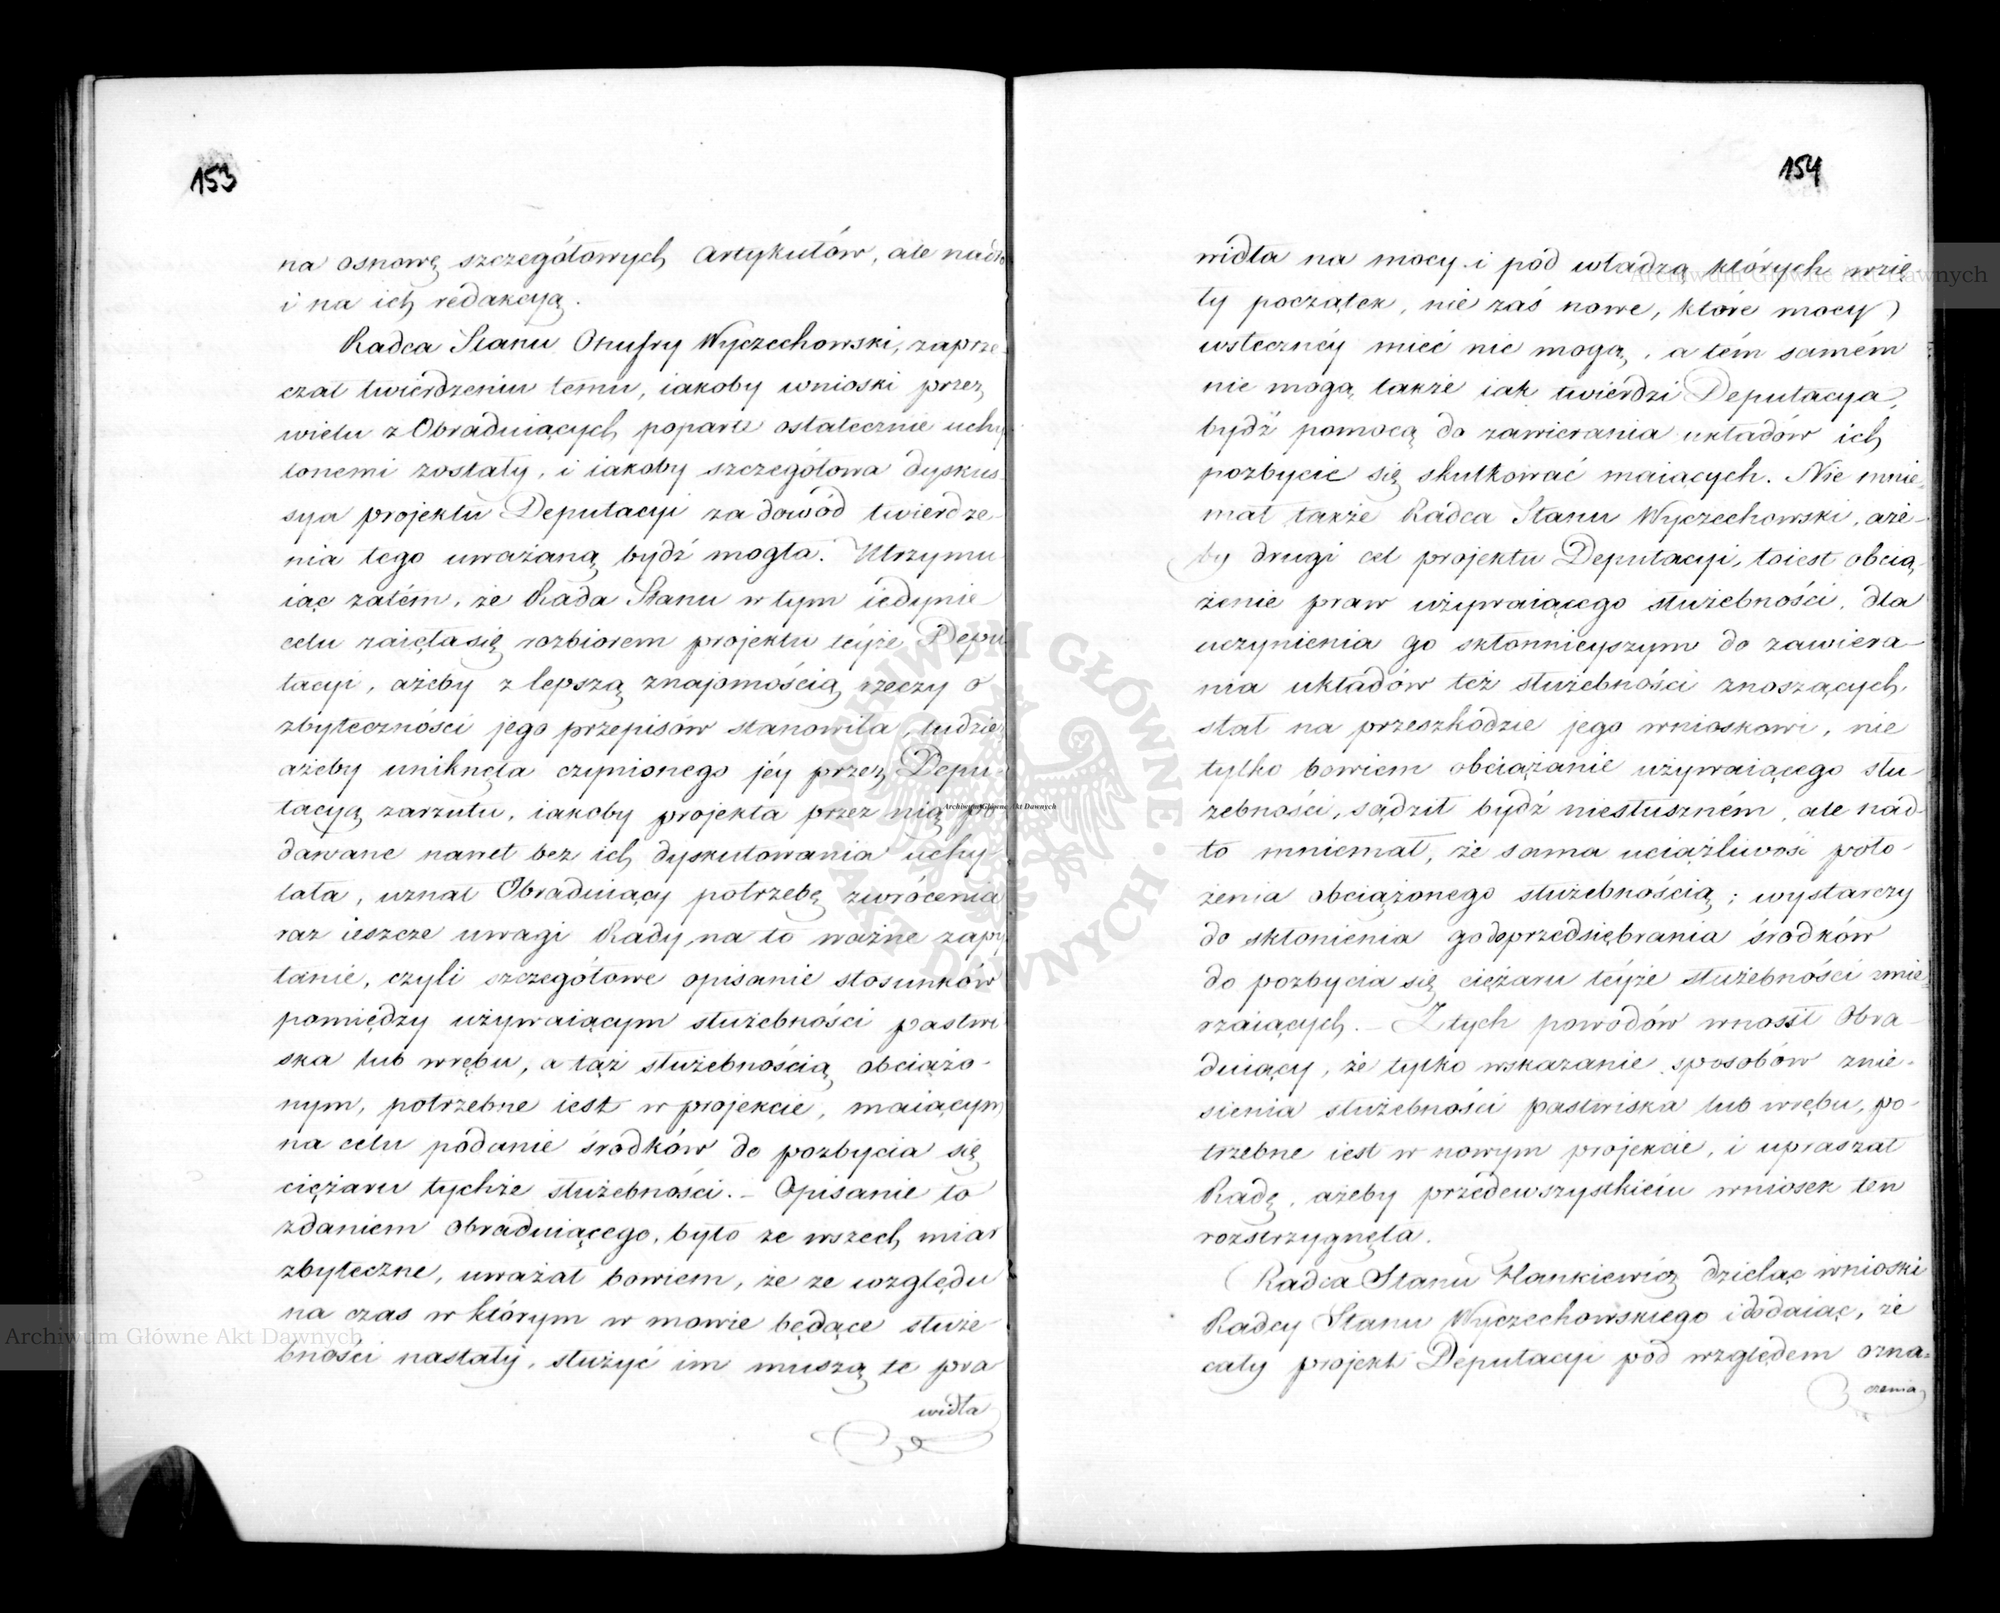 153
na osnowę szczegółowych Artykułów, ale nadto
i na ich redakcyą.
Radca Stanu Onufry Wyczechowski, zaprze-
czał twierdzeniu temu, iakoby wnioski przez
wielu z Obraduiących poparte ostatecznie uchy-
lonemi zostały, i iakoby szczegółowa dyskus-
sya projektu Deputacyi za dowód twierdze-
nia tego uważaną bydź mogła. Utrzymu-
iąc zatém, że Rada Stanu w tym iedynie
celu zaięła się rozbiorem projektu teyże Depu-
tacyi, ażeby z lepszą znajomością rzeczy o
zbyteczności jego przepisów stanowiła, tudzież
ażeby uniknęła czynionego jéy przez Depu-
tacyą zarzutu, iakoby projekta przez nią po-
dawane nawet bez ich dyskutowania uchy-
lała, uznał Obraduiący potrzebę zwrócenia
raz ieszcze uwagi Rady na to ważne zapy-
tanie, czyli szczegółowe opisanie stosunków
pomiędzy używaiącym służebności pastwi-
ska lub wrębu, a tąż służebnością obciążo-
nym, potrzebne iest w projekcie, maiącym
na celu podanie środków do pozbycia się
ciężaru tychże służebności. – Opisanie to
zdaniem Obraduiącego, było ze wszech miar
zbyteczne, uważał bowiem, że ze względu
na czas w którym w mowie będące służe-
bności nastały, służyć im muszą te pra
widła
154
widła na mocy i pod władzą których wzię-
ły początek, nie zaś nowe, które mocy
wstecznéy mieć nie mogą, a tém samém
nie mogą także iak twierdzi Deputacya,
bydź pomocą do zawierania układów ich
pozbycie się skutkować maiących. Nie mnie-
mał także Radca Stanu Wyczechowski, aże-
by drugi cel projektu Deputacyi, toiest obcią-
żenie praw używaiącego służebności, dla
uczynienia go skłonnieyszym do zawiera-
nia układów też służebności znoszących,
stał na przeszkodzie jego wnioskowi, nie
tylko bowiem obciążanie używaiącego słu-
żebności, sądził bydź niesłuszném, ale nad-
to mniemał, że sama uciążliwość poło-
żenia obciążonego służebnością; wystarczy
do skłonienia go do przedsiębrania środków
do pozbycia się ciężaru teyże służebności zmie-
rzaiących. – Z tych powodów wnosił Obra-
duiący, że tylko wskazanie sposobów znie-
sienia służebności pastwiska lub wrębu, po-
trzebne iest w nowym projekcie, i upraszał
Radę, ażeby przedewszystkiém wniosek ten
rozstrzygnęła.
Radca Stanu Hankiewicz dzieląc wnioski
Radcy Stanu Wyczechowskiego i dodaiąc, że
cały projekt Deputacyi pod względem ozna-
czenia
Archiwum Główne Akt Dawnych
Archiwum Główne Akt Dawnych
Archiwum Główne Akt Dawnych
ARCHIWUM GŁÓWNE AKT DAWNYCH